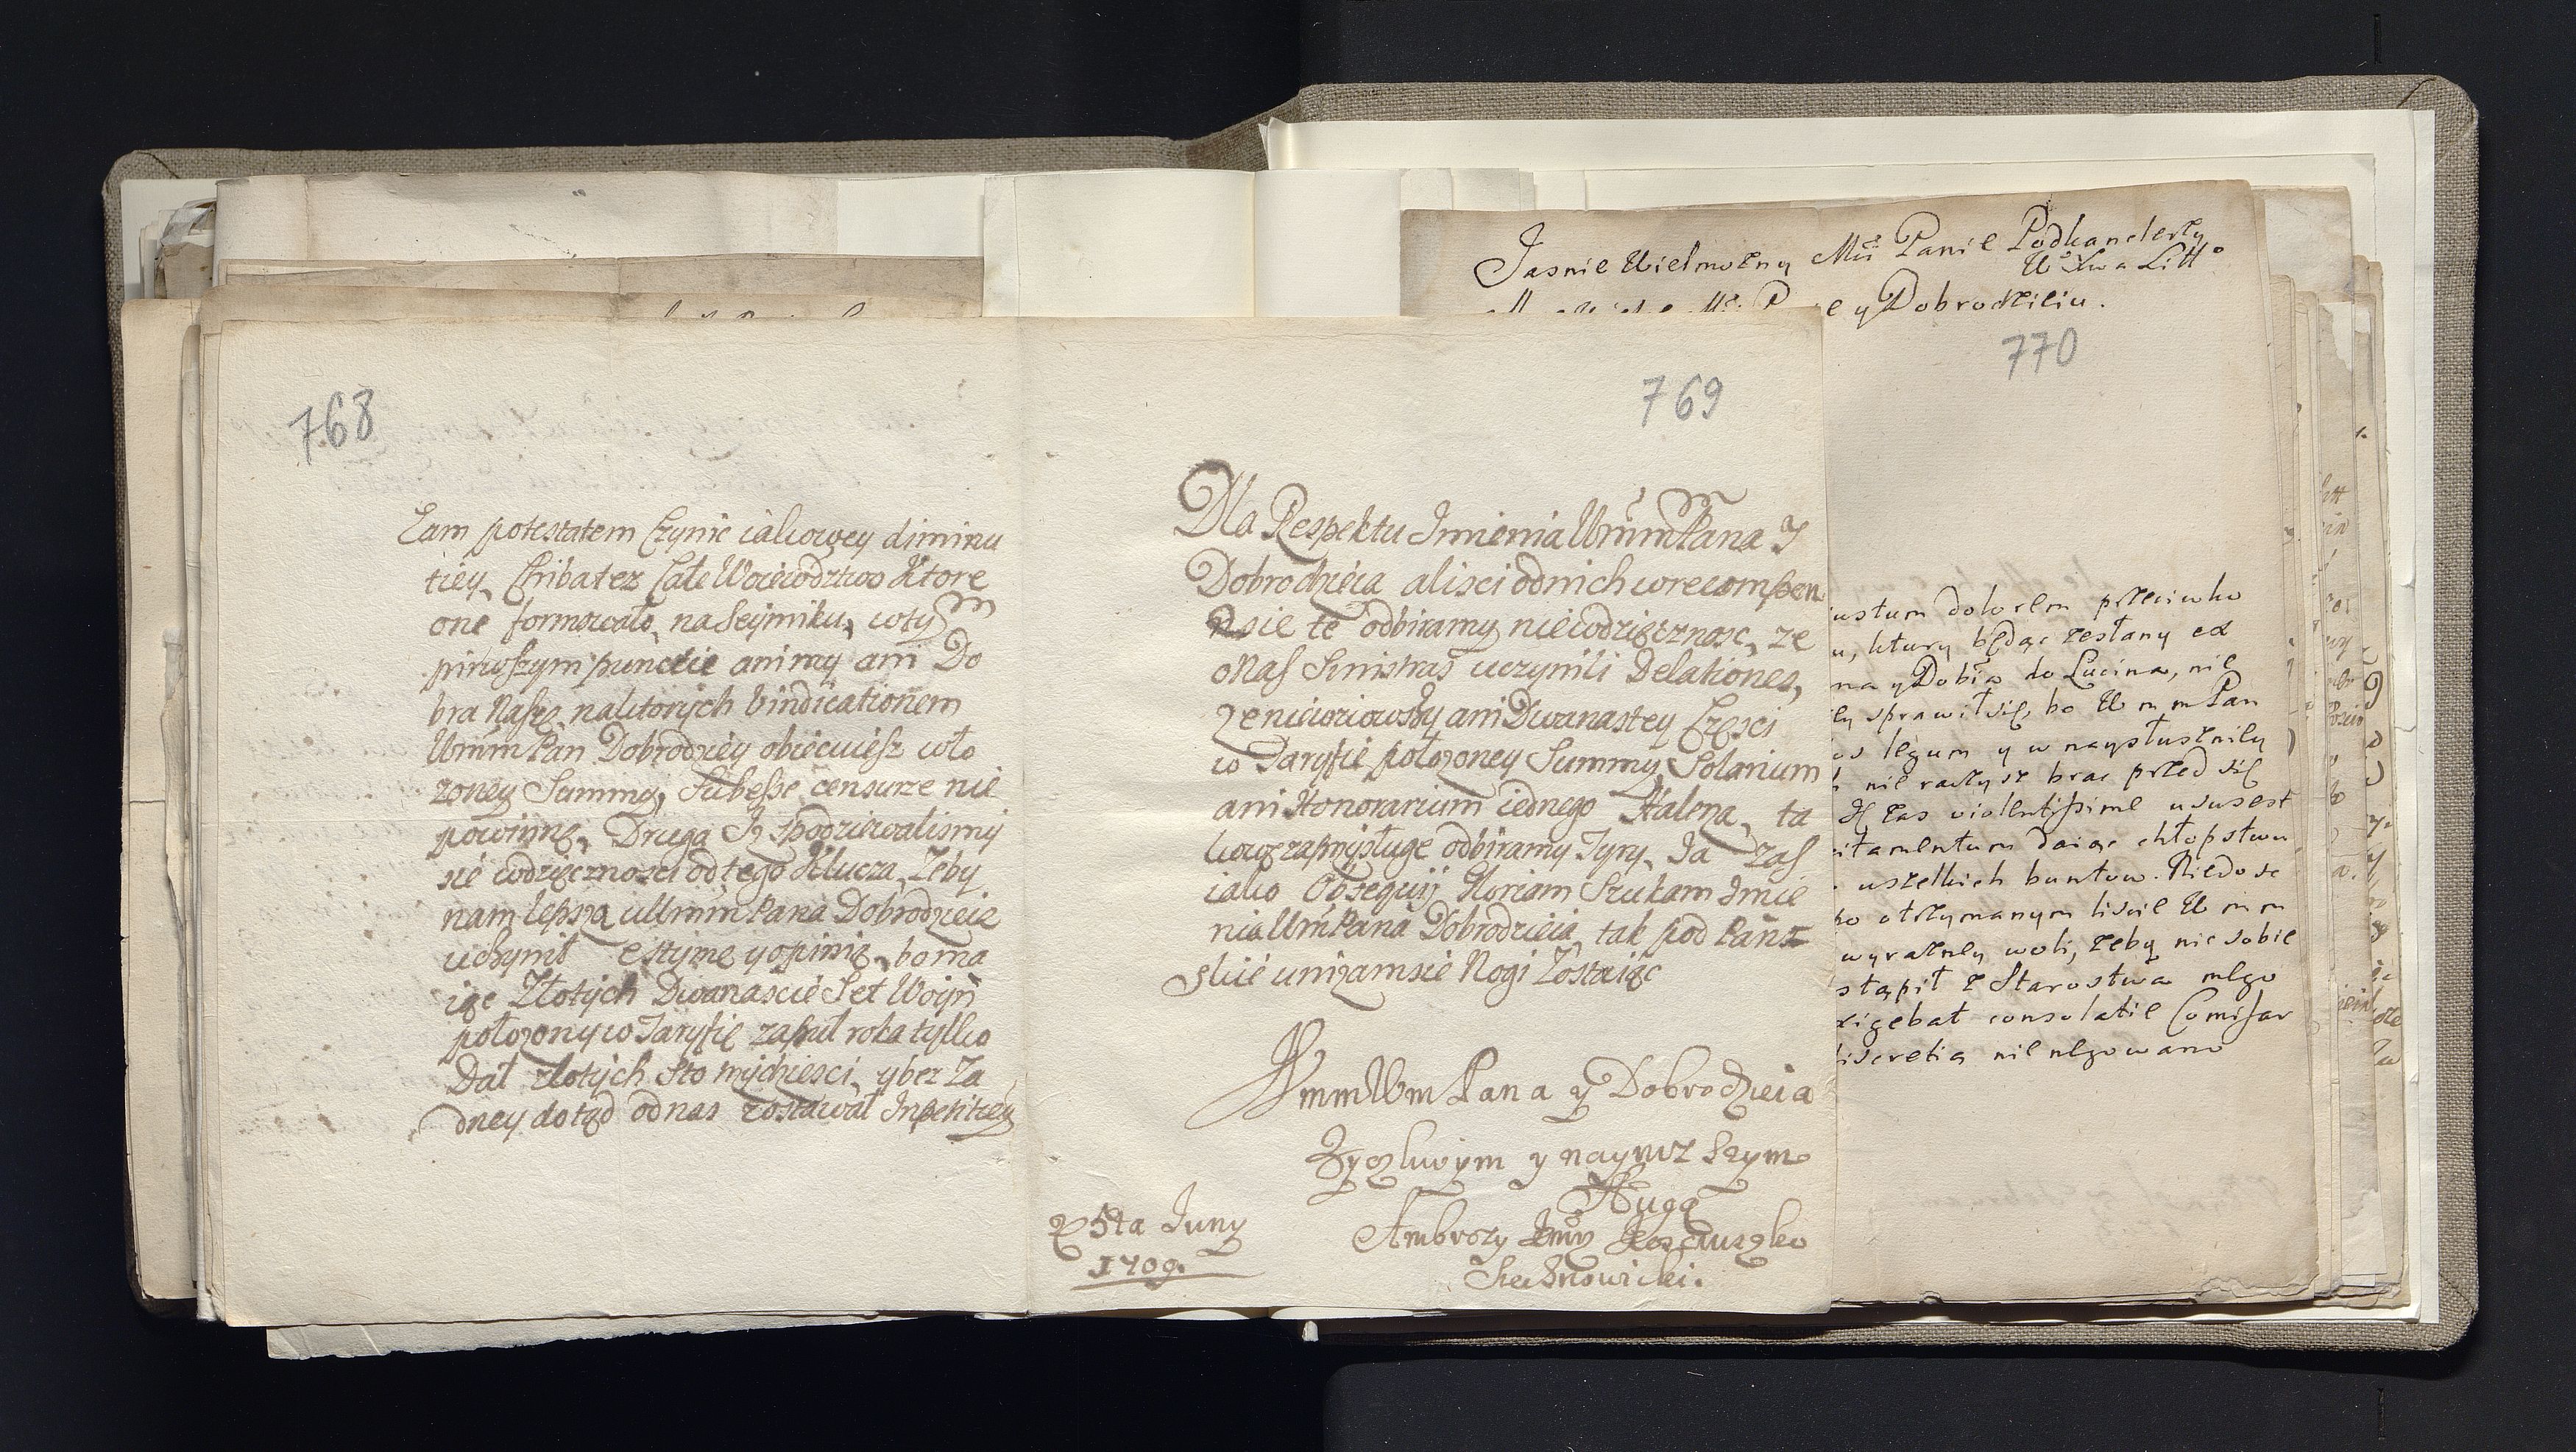 768
Eam potestatem Czynic iakowey diminu
tiey, Chiba tez Całe Woiewodztwo Ktore
one formowało, na Seymiku, w tym
pirwszym punctie ani my ani Do
bra Nasze, na ktorych Vindicationem
Umm Pan Dobrodziey obiecuiesz wło
zoney Summy, Subesse censurze nie
powinne, Druga Iz spodziewalismy
sie wdzięcznosci od tego Klucza, Zeby
nam lepszą u Umm Pana Dobrodzieia
uczynił estymę y opinię, bo ma
iąc Złotych Dwanascie Set Woyn
połozony w Taryfie za puł roka tylko
Dał złotych sto mychiesci, y bez Za
dney dotąd od nas zostawał Inpetitiey
769
Dla Respektu Imienia Umm Pana I
Dobrodzieia alisci od nich w recompen
sie te odbiramy niewdzięcznosc, ze
o Nas Sinistras uczynili Delationes,
Ze niewziowszy ani Dwanastey Częsci
w Taryfie połozoney Summy, Solarium
ani Honorarium iednego Halerza, ta
kowe zasmysługe odbiramy Tyry, Ia zas
iako Obsequij Gloriam Szukam Imie
nia Umm Pana Dobrodzieia, tak pod Pans
skie unizam sie Nogi Zostaiąc
Wmm Wm Pana y Dobrodzieia
Zyczliwym y naynizszym
Sługą
Ambrozy Kosciuszko
Siechnowicki.
25ta Juny
1709.
Jasnie Wielmozny Mći Panie Podkanclerzy
W. X. Litto
e y Dobrodzieiu.
770
iustum dolorem przeciwko
u, ktury będąc zesłany od
na y Dobia do Lucina, nie
ły sprawił się, bo W m m Pan
os legum y w naysłusznily
nie raczysz brac przed się
zas violentissime usus est
itamentum daiąc chłopstwu
wszelkich buntow. Niedosc
po otrzymanym liscie W m m
wyrazney woli, zeby nic sobie
stąpił z Starostwa mego
xigebat consolatie Comissar
iscretią nie ukgowano